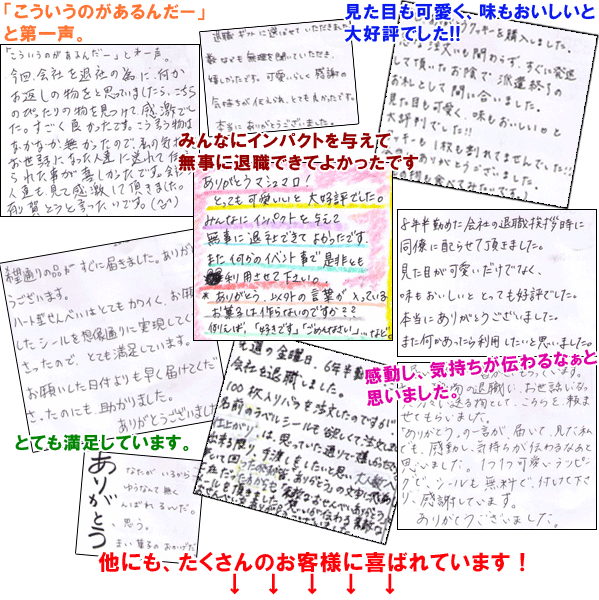 「こういうのがあるんだー」
と第一声。
見た目も可愛く、味もおいしいと
大好評でした!!
「こういうのがあるんだー」と第一声。
今回、会社を退社の為に、何か
お返しの物をと思っていましたら、こちら
のぴったりの物を見つけて感激でし
た。すごく良かったです。こう言う物は
なかなか無かったので、私の気持
お世話になった人達に送れて
られた事が喜しかったです。
人達も見て感激して頂きました。
有賀とうと言ったいです。
退職ギフトに選ばせていただきました。
数なども無理を聞いていただき、
嬉しかったです。可愛いらしく感謝の
気持ちが伝えられ、とても良かったです。
本当にありがとうございました。
クッキーを購入しました。
注文にも関わらず、すぐに発送
して頂いたお陰で派遣終了の
お礼として間に合いました。
見た目も可愛く、味もおいしいと
大評判でした!!
クッキーも1枚も割れてませんでした!!
ありがとうございました。
みんなにインパクトを与えて
無事に退職できてよかったです
ありがとうマシュマロ!
とっても可愛いいと大好評でした。
みんなにインパクトを与えて
無事に退社できてよかったです。
また何かのイベント事で是非とも
利用させて下さい。
*ありがとう、以外の言葉が入っている
お菓子は作らないのですか??
例えば、「好きです」「ごめんなさい」…など
8年半勤めた会社の退職挨拶時に
同僚に配らせて頂きました。
見た目が可愛いだけでなく、
味もおいしいととっても好評でした。
本当にありがとうございました。
また何かあったら利用したいと思いました。
希望通りの品がすぐに届きました。ありが
うございます。
ハート型せんべいはとてもカワイく、お願
したシールを想像通りに実現してく
さったので、とても満足しています。
お願いした日付よりも早く届けてくだ
さったのにも、助かりました。
ありがとうございまし
とても満足しています。
先週の金曜日、6年半勤
会社を退職しました。
100枚入りバラを注文したのですが
名前のラベルシールも欲しくて注文
仕上がりは、思っていた通りで
感動し、気持ちが伝わるなぁと
思いました。
の退職に、お世話にな
に送る物として、こちらを頼ま
せてもらいました。
「ありがとう」の一言が、届いて、見た私
でも、感動し、気持ちが伝わるなあと
思いました。1つ1つ可愛いラッピン
グで、シールも無料で、付けて下さ
り、感謝しています。
ありがとうございました。
ありがとう
なたがいるから
ゆうなんて無く
んばれるんだ。
思う。
他にも、たくさんのお客様に喜ばれています!
↓ ↓ ↓ ↓ ↓